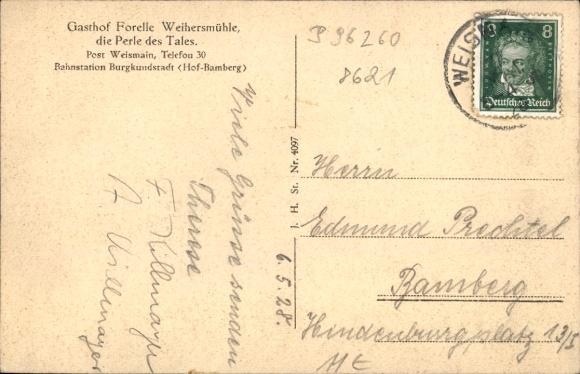 Gasthof Forelle Weihersmühle,
die Perle des Tales.
Post Weismain, Telefon 30
Bahnstation Burgkundstadt (Hof-Bamberg)
P 96260
8621
WEIS
8 8
Deutsches Reich
Viele Grüsse senden
Therese
F. Killmayr
A. Willmayer
6.5.28.
J. H. St. Nr. 4097
Herrn
Edmund Prechtel
Bamberg
Hindenburgplatz 13/I